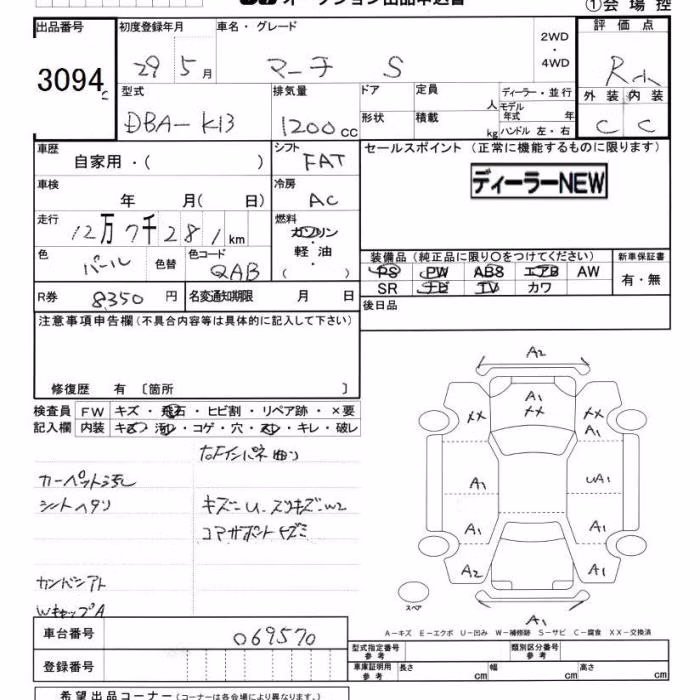 オークション出品申込書
①会場控
出品番号 初度登録年月 車名・グレード 2WD・4WD 評価点
3094 29年5月 マーチ S R小
型式 排気量 ドア 定員 人 ディーラー・並行 外装 内装
DBA-K13 1200cc 形状 積載 kg モデル年式 年 ハンドル 左・右 C C
車歴 自家用・( ) シフト FAT セールスポイント (正常に機能するものに限ります)
ディーラーNEW
車検 年 月(日) 冷房 AC
走行 12万7千281km 燃料 ガソリン・軽油・( )
色 パール 色替 色コード QAB
装備品(純正品に限り○をつけてください) 新車保証書
PS PW ABS エアB AW 有・無
SR ナビ TV カワ
R券 8,350円 名変通知期限 月 日 後日品
注意事項申告欄(不具合内容等は具体的に記入して下さい)
修復歴 有 〔箇所 〕
検査員記入欄 FW キズ・飛石・ヒビ割・リペア跡・×要
内装 キズ・汚レ・コゲ・穴・スレ・キレ・破レ
カーペット汚レ
シートヘタリ
キズ=U. スリキズ=W2
コアサポートキズミ
カンバンアト
WキャップA
A2
A1
XX XX XX
A1
A1 UA1
A1 A1
A2 A1
A1
スペア
A-キズ E-エクボ U-凹み W-補修跡 S-サビ C-腐食 XX-交換済
車台番号 069570
登録番号
型式指定番号 参考 類別区分番号 参考
車庫証明用 参考 長さ cm 幅 cm 高さ cm
希望出品コーナー(コーナーは各会場により異なります。)